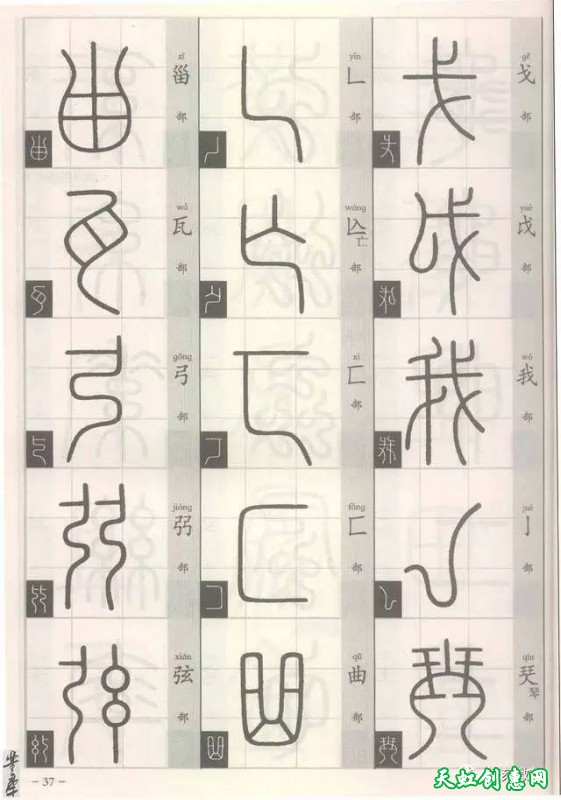 gē
戈
部
yuè
戉
部
wǒ
我
部
jué
亅
部
qín
珡
琴
部
yǐn
乚
部
wáng
亾
亡
部
xì
匸
部
fāng
匚
部
qū
曲
部
zī
甾
部
wǎ
瓦
部
gōng
弓
部
jiàng
弜
部
xián
弦
部
– 37 –
天虹创意网